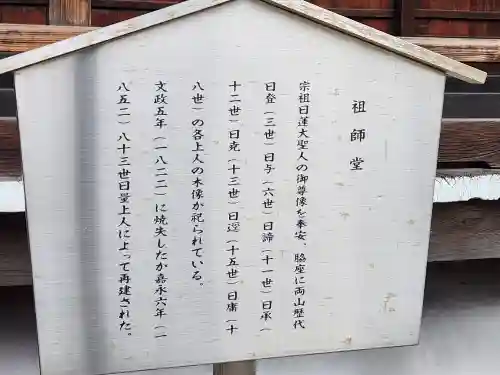 祖師堂
宗祖日蓮大聖人の御尊像を奉安、脇座に両山歴代
日登（三世）日与（六世）日諦（十一世）日承（
十二世）日尭（十三世）日遥（十五世）日庸（十
八世）の各上人の木像が祀られている。
文政五年（一八二二）に焼失したか嘉永六年（一
八五二）八十三世日量上人によって再建された。